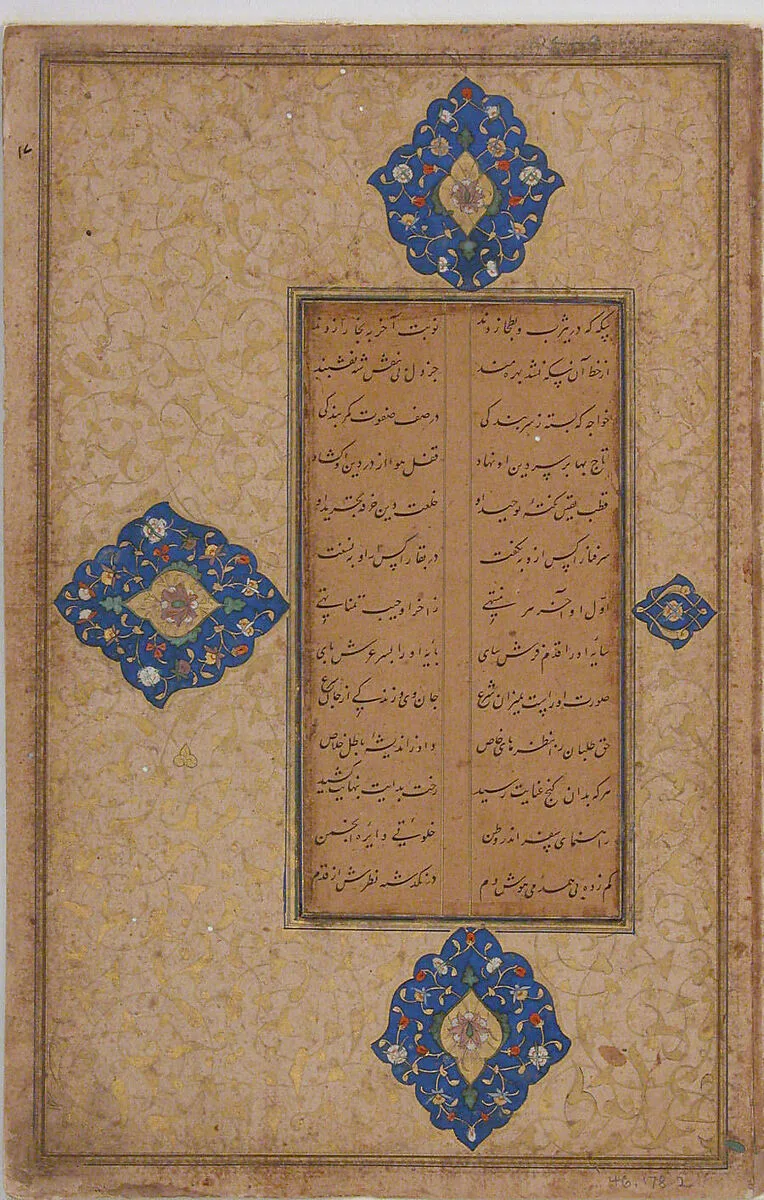 ۱۷
سکه که در یثرب و بطحا زدند نوبت آخر به بخارا زدند
از خط آن سکه نشد بهره مند جز دل بی نقش شه نقشبند
خواجه که بسته ز سر بندگی در صف صفوت کمر بندگی
تاج بها بر سر دین او نهاد قفل هوا از در دین او گشاد
قطب یقین نکتهٔ توحید او خلعت دین خرقه تجرید او
سر فنا را کس ازو به نگفت در بقا را کس او به نسفت
اول او آخر هر منتهی ز آخر او جیب تمنا تهی
سایهٔ او را قدم فرش سای پایه او را بسر عرش پای
صورت او راست بمیزان شرع جان وی و زنده کی از جان شرع
حق طلبان را نظرهای خاص داده ز اندیشهٔ باطل خلاص
هر که بدان گنج عنایت رسید رخت بدایت بنهایت کشید
راهنمای سفر اندر وطن خلوتی دایرهٔ انجمن
کم زده بی همدمی هوش دم در نگذشته نظرش از قدم
46.178.2